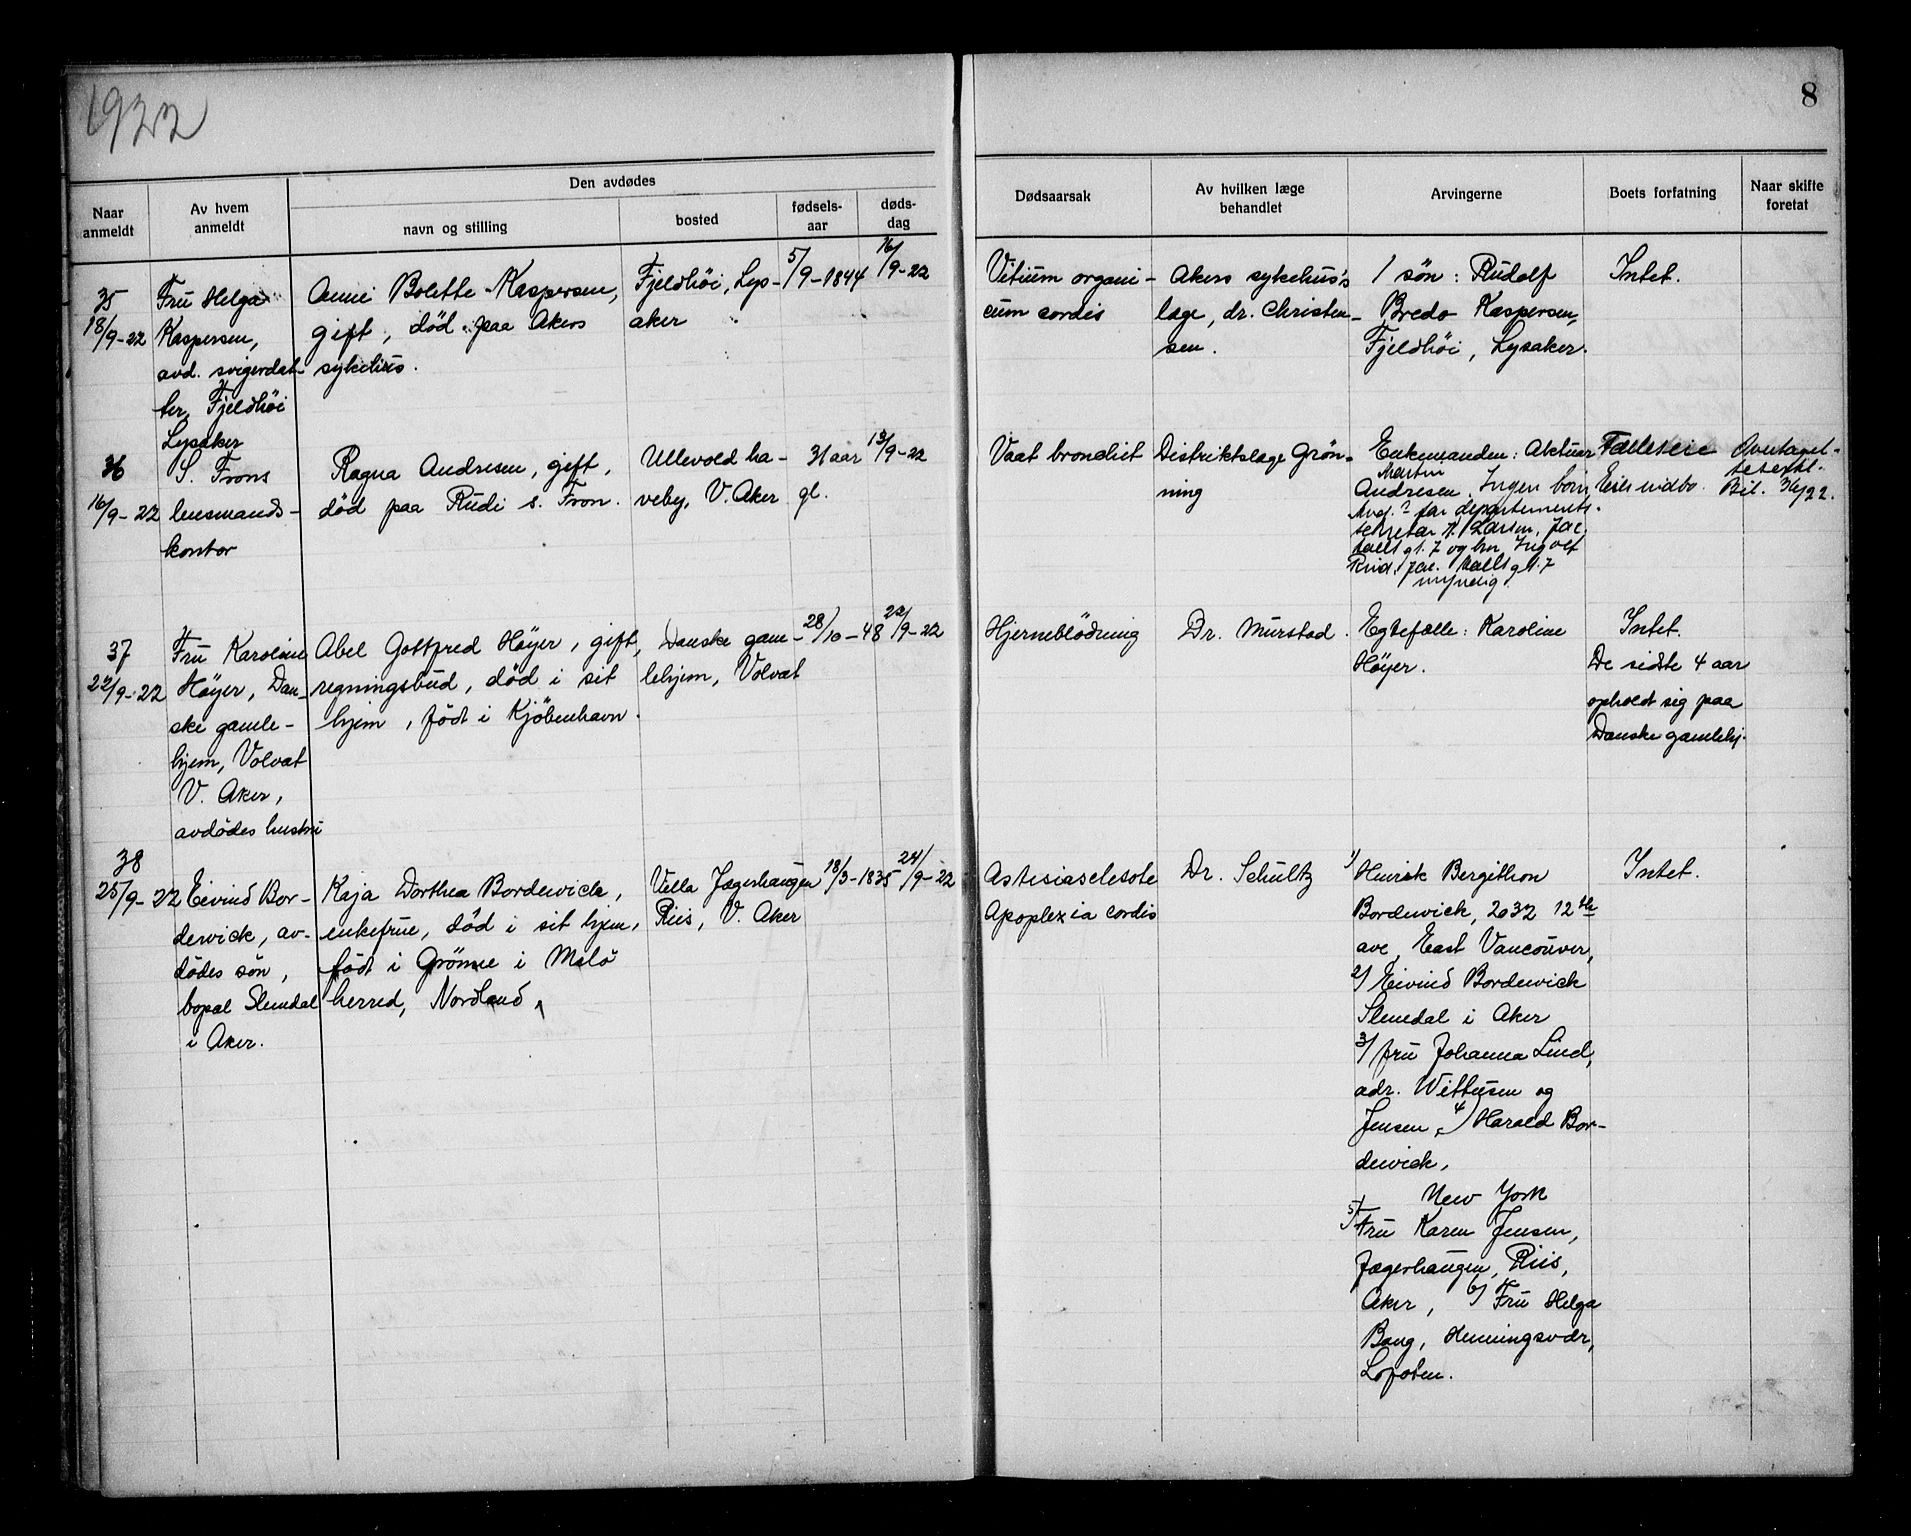 1922
8
Den avdødes
Naar anmeldt
Av hvem anmeldt
navn og stilling
bosted
fødsels-aar
døds-dag
Dødsaarsak
Av hvilken læge behandlet
Arvingerne
Boets forfatning
Naar skifte foretat
35
18/9-22
Fru Helga
Kaspersen,
avd. svigerdat-
ter, Fjeldhöi
Lysaker
Anne Bolette Kaspersen,
gift, död paa Akers
sykehus.
Fjeldhöi, Lys-
aker
5/9-1844
16/9-22
Vitium organi-
cum cordis
Akers sykehus's
læge, dr. Christen-
sen.
1 sön: Rudolf
Bredo Kaspersen,
Fjeldhöi, Lysaker.
Intet.
36
16/9-22
S. Frons
lensmands-
kontor
Ragna Andresen, gift,
död paa Rudi s. Fron.
Ullevold ha-
veby, V. Aker
31 aar
gl.
13/9-22
Vaat bronchit
Distriktslæge Grön-
ning
Enkemanden: Aktuar
Martin
Andresen. Ingen börn
Avd.? far departements
sekretær A. Larsen, Jac.
Aalls gt. 7 og bror Ingolf
Ruid, Jac. Aalls gt. 7
myndig.
Fælleseie
37
22/9-22
Fru Karoline
Höyer, Dan-
ske gamle-
hjem, Volvat
V. Aker,
avdödes hustru
Abel Gottfred Höyer, gift,
regningsbud, död i sit
hjem, födt i Kjöbenhavn.
Danske gam-
lehjem, Volvat
28/10-48
22/9-22
Hjerneblödning
Dr. Murstad.
Egtefælle: Karoline
Höyer.
Intet.
De sidste 4 aar
opholdt sig paa
Danske gamlehj.
38
25/9-22
Eivind Bor-
dewick, av-
dödes sön,
bopæl Slemdal
i Aker.
Kaja Dorthea Bordewick,
enkefrue, död i sit hjem,
födt i Grönne i Melö
herred, Nordland,
Villa Jægerhaugen
Riis, V. Aker
18/3-1835
24/9-22
Apoplexia cordis
Dr. Schultz
1/ Henrik Bergithon
Bordewick, 2032 12th
ave, East Vancouver,
2/ Eivind Bordewick
Slemdal i Aker
3/ fru Johanna Lind,
adr. Wittusen og
Jensen, 4/ Harald Bor-
dewick,
New York
5/ Fru Karen Jensen,
Jægerhaugen, Riis,
Aker, 6/ Fru Helga
Bang, Henningsvær,
Lofoten.
Intet.